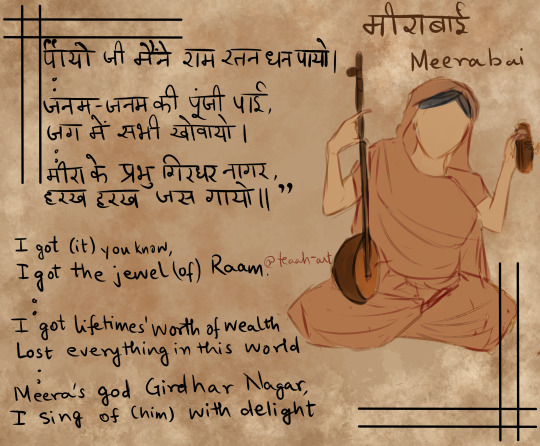 मीराबाई
Meerabai
पायो जी मैंने राम रतन धन पायो।
:
जनम-जनम की पूंजी पाई,
जग में सभी खोवायो।
:
मीरा के प्रभु गिरधर नागर,
हरख हरख जस गायो॥”
I got (it) you know,
I got the jewel (of) Raam.
@teaah-art
:
I got lifetimes' worth of wealth
Lost everything in this world
:
Meera's god Girdhar Nagar,
I sing of (him) with delight